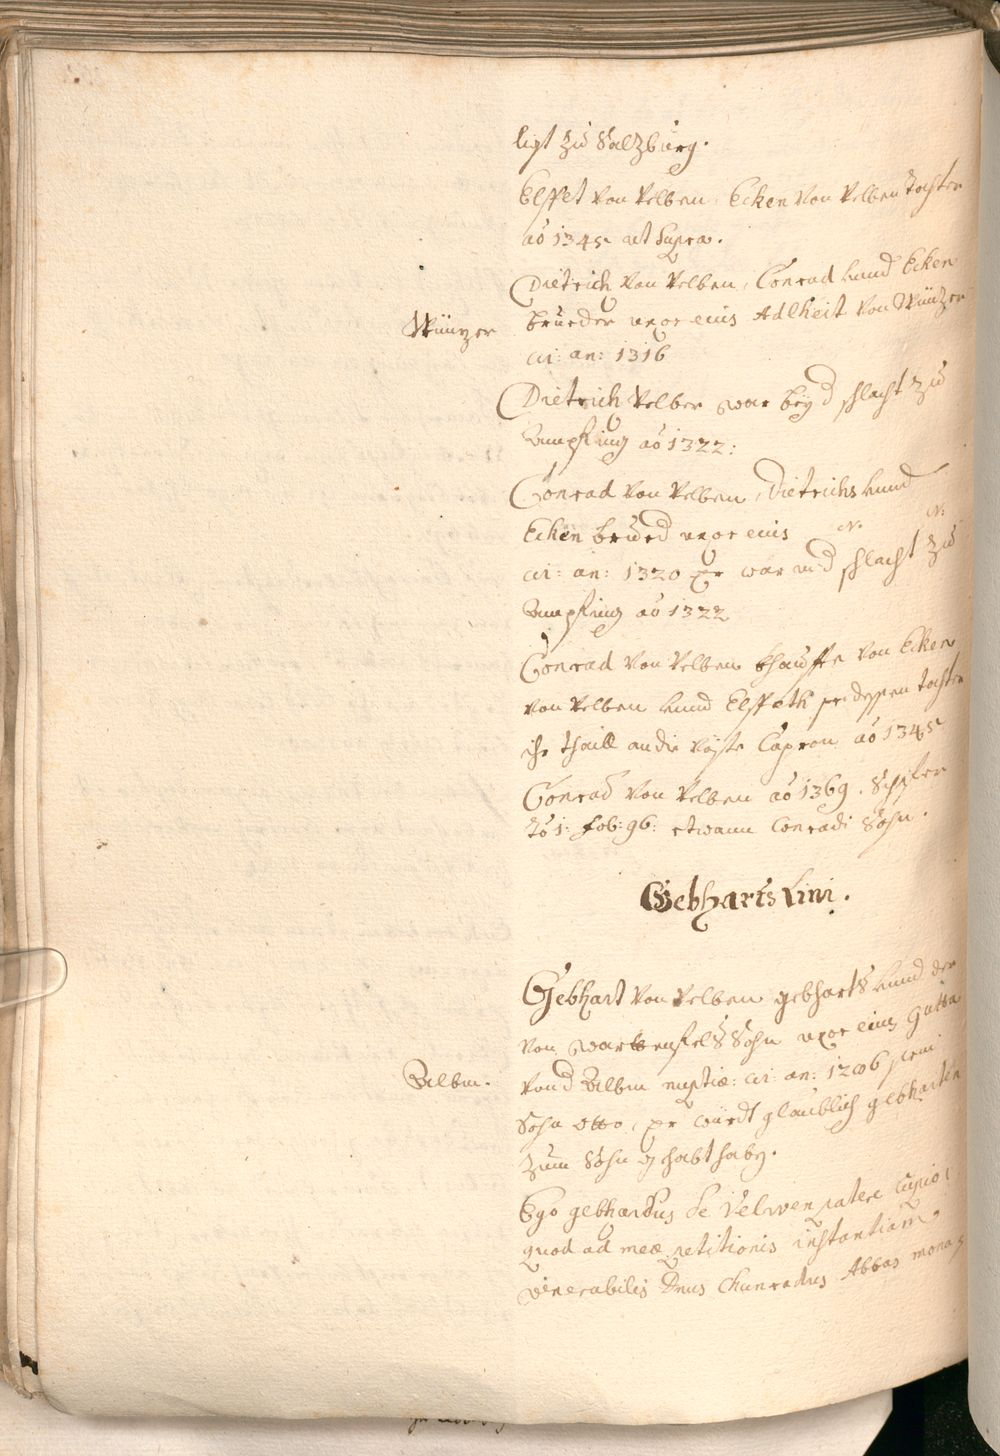 ligt zu Salzburg.
Elsset von Velben, Ecken von Velben Tochter
aō 1345 ut supra.
Dietrich von Velben, Conrad unnd Ecken
Wünzer
brueder uxor eius Adlheit von Wünzer
ci: an: 1316
Dietrich Velber war bey d schlacht zu
Ampfing aō 1322:
Conrad von Velben, Dietrichs unnd
Ecken brued uxor eius N. N.
ci: an: 1320 Er war in d schlacht zu
Ampfing aō 1322
Conrad von Velben khauffte von Ecken
von Velben unnd Elsseth sei dessen tochter
ihr thaill an die Veste Capron aō 1345
Conrad von Velben aō 1369.
To 1: fol: 96: etwann Conradi Sohn.
Gebharts Lini.
Gebhart von Velben gebharts unnd der
von Wartenfels Sohn uxor eius Gutta
Albm.
von d Albm nuptiæ: ci: an: 1206
Sohn Otto, Er würdt glaublich gebharten
zum Sohn gehabt hab.
Ego gebhardus de Velwen patere cupio
quod ad meæ petitionis instantiam
venerabilis Dnus Chunradus Abbas mona